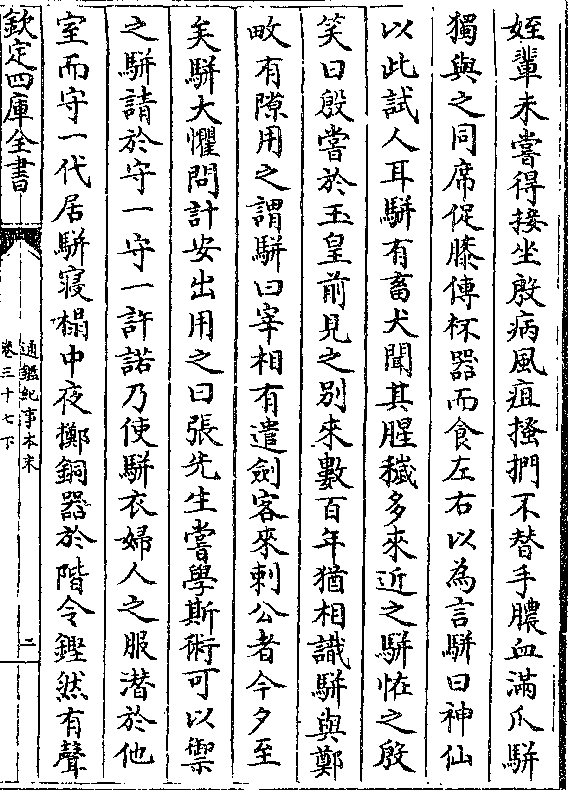 姪輩未嘗得接坐殷病風疽搔捫不替手膿血滿爪駢
獨與之同席促膝傳杯器而食左右以為言駢曰神仙
以此試人耳駢有畜犬聞其腥穢多來近之駢恠之殷
笑曰殷嘗於玉皇前見之别來數百年猶相識駢與鄭
畋有隙用之謂駢曰宰相有遣劍客來刺公者今夕至
矣駢大懼問計安出用之曰張先生嘗學斯術可以禦
之駢請於守一守一許諾乃使駢衣婦人之服潛於他
室而守一代居駢寢榻中夜擲銅器於階令鏗然有聲
欽定四庫全書
通鑑紀事本末
卷三十七下
二